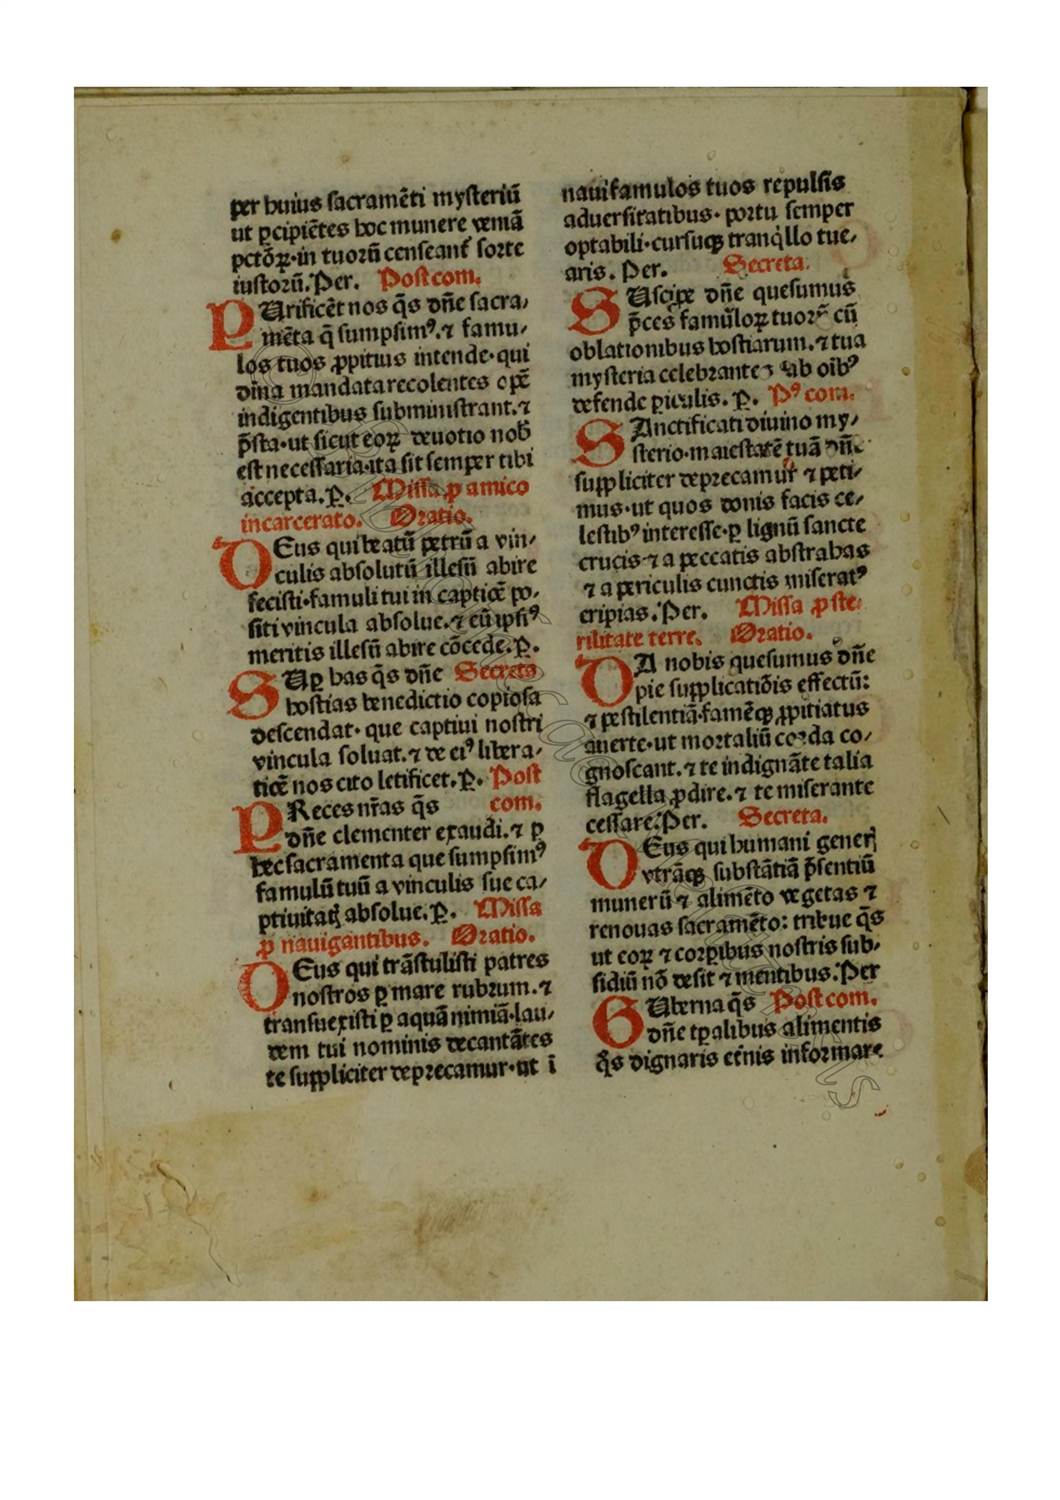 per huius sacramẽti mysteriũ
ut ꝑcipiẽtes hoc munere veniã
pctõꝝ·in tuorũ censeant᷑ sorte
iustorũ. Per. Postcom.
PUrificẽt nos q̃s dñe sacra/
mẽta q̃ sumpsimꝰ.⁊ famu/
los tuos ꝓpitius intende·qui
diña mandata recolentes opẽ
indigentibus subministrant.⁊
p̃sta·ut sicut eoꝝ deuotio nob̃
est necessaria·ita sit semper tibi
accepta.P. Missa ꝓ amico
incarcerato. Oratio.
DEus qui beatũ petrũ a vin/
culis absolutũ illesũ abire
fecisti·famuli tui in captiõe po/
siti vincula absolue.⁊ eũ ipsiꝰ
meritis illesũ abire cõcede.P.
SUꝑ has q̃s dñe Secreta
hostias benedictio copiosa
descendat·que captiui nostri
vincula soluat.⁊ de eiꝰ libera/
tiõe nos cito letificet.P. Post
PReces nr̃as q̃s com.
dñe clementer exaudi.⁊ ꝑ
hec sacramenta que sumpsimꝰ
famulũ tuũ a vinculis sue ca/
ptiuitatꝭ absolue.P. Missa
ꝓ nauigantibus. Oratio.
DEus qui trãstulisti patres
nostros ꝑ mare rubrum.⁊
transuexisti ꝑ aquã nimiã·lau/
dem tui nominis decantãtes
te suppliciter deprecamur·ut ĩ
naui famulos tuos repulsis
aduersitatibus·portu semper
optabili·cursuqꝫ tranq̇llo tue/
aris. Per. Secreta.
SUscipe dñe quesumus
p̃ces famũloꝝ tuoꝝ cũ
oblationibus hostiarum.⁊ tua
mysteria celebrantes ab oĩbꝰ
defende ꝑiculis. P. Pꝰ com.
SAnctificati diuino my/
sterio·maiestatẽ tuã dñe
suppliciter deprecamur ⁊ peti/
mus·ut quos donis facis ce/
lestibꝰ interesse·ꝑ lignũ sancte
crucis·⁊ a peccatis abstrahas
⁊ a periculis cunctis miseratꝰ
eripias. Per. Missa ꝓ ste/
rilitate terre. Oratio.
DA nobis quesumus dñe
pie supplicatiõis effectũ:
⁊ pestilentiã·famẽqꝫ ꝓpitiatus
auerte·ut mortaliũ corda co/
gnoscant.⁊ te indignãte talia
flagella ꝓdire.⁊ te miserante
cessare. Per. Secreta.
DEus qui humani generꝭ
vtrãqꝫ substãtiã p̃sentiũ
munerũ ⁊ alimẽto vegetas ⁊
renouas sacramẽto: tribue q̃s
ut eoꝝ ⁊ corꝑibus nostris sub/
sidiũ nõ desit ⁊ mentibus. Per
GUberna q̃s Postcom.
dñe tꝑalibus alimentis
q̃s dignaris et̃nis informare